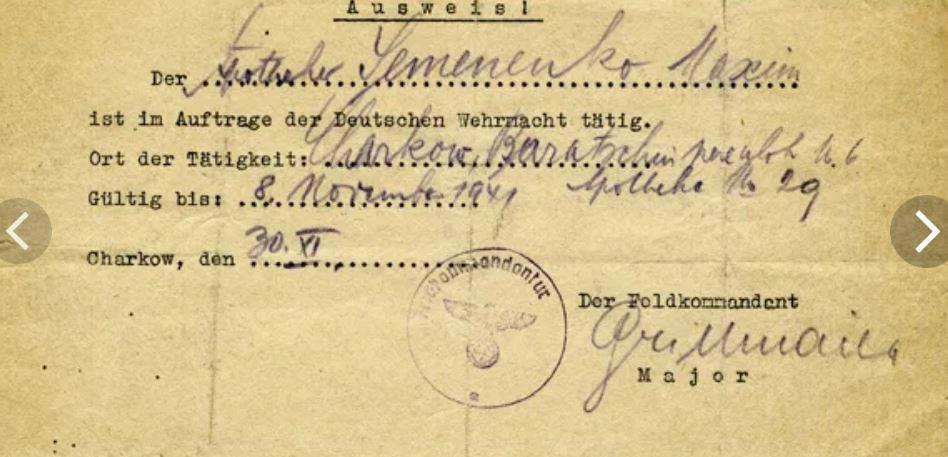 Ausweis!
Der Apotheker Semenenko Maxim
ist im Auftrage der Deutschen Wehrmacht tätig.
Ort der Tätigkeit: Charkow, N. 6
Gültig bis: 8. November 1941 Apotheke No 29
Charkow, den 30. VI
kommandantur
Der Feldkommandant
Major